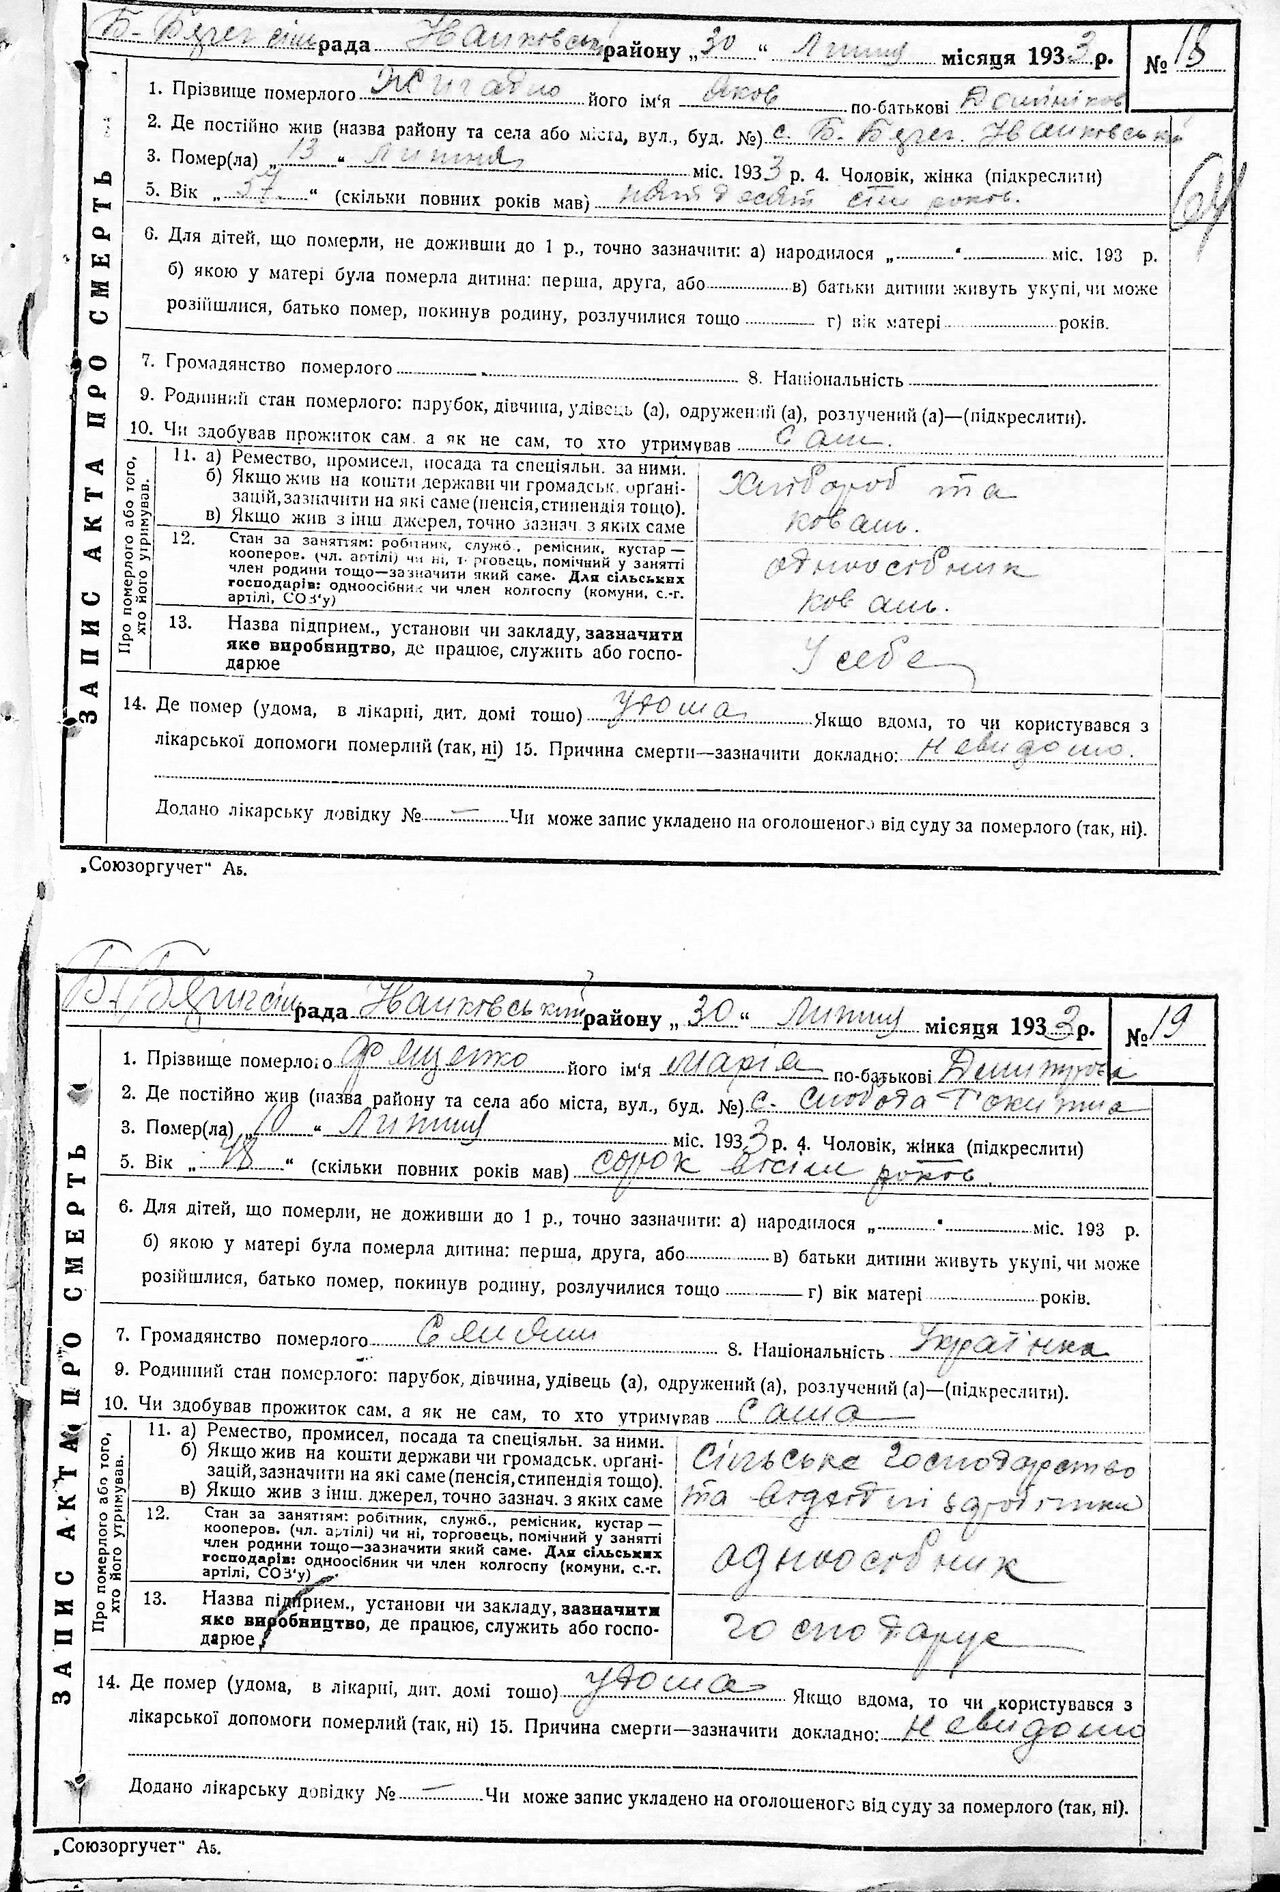 Б-Берег сіль рада району „30“ Липня місяця 1933 р. № 18
1. Прізвище померлого його ім'я Яков по-батькові
2. Де постійно жив (назва району та села або міста, вул., буд. №) с. Б. Берег.
3. Помер(ла) „13“ Липня міс. 1933 р. 4. Чоловік, жінка (підкреслити)
5. Вік „57“ (скільки повних років мав) пятдесят сім років.
64
6. Для дітей, що померли, не доживши до 1 р., точно зазначити: а) народилося „ “ міс. 193 р.
б) якою у матері була померла дитина: перша, друга, або в) батьки дитини живуть укупі, чи може
розійшлися, батько помер, покинув родину, розлучилися тощо г) вік матері років.
7. Громадянство померлого 8. Національність
9. Родинний стан померлого: парубок, дівчина, удівець (а), одружений (а), розлучений (а)—(підкреслити).
10. Чи здобував прожиток сам, а як не сам, то хто утримував Сам.
Про померлого або того, хто його утримував.
11. а) Ремество, промисел, посада та спеціяльн. за ними.
б) Якщо жив на кошти держави чи громадськ. органі-
зацій, зазначити на які саме (пенсія, стипендія тощо).
в) Якщо жив з інш. джерел, точно зазнач. з яких саме
Хлібороб та
коваль.
12. Стан за заняттям: робітник, служб., ремісник, кустар —
кооперов. (чл. артілі) чи ні, торговець, помічний у занятті
член родини тощо—зазначити який саме. Для сільських
господарів: одноосібник чи член колгоспу (комуни, с.-г.
артілі, СОЗ'у)
одноосібник
коваль.
13. Назва підприєм., установи чи закладу, зазначити
яке виробництво, де працює, служить або госпо-
дарює
У себе
14. Де помер (удома, в лікарні, дит. домі тошо) удома Якщо вдома, то чи користувався з
лікарської допомоги померлий (так, ні) 15. Причина смерти—зазначити докладно: невидомо.
Додано лікарську довідку № — Чи може запис укладено на оголошеного від суду за померлого (так, ні).
ЗАПИС АКТА ПРО СМЕРТЬ
„Союзоргучет“ А5.
рада району „30“ Липня місяця 1933 р. № 19
1. Прізвище померлого його ім'я Марія по-батькові Дмитрова
2. Де постійно жив (назва району та села або міста, вул., буд. №) с. Слобода
3. Помер(ла) „10“ Липня міс. 1933 р. 4. Чоловік, жінка (підкреслити)
5. Вік „48“ (скільки повних років мав) сорок вісім років.
6. Для дітей, що померли, не доживши до 1 р., точно зазначити: а) народилося „ “ міс. 193 р.
б) якою у матері була померла дитина: перша, друга, або в) батьки дитини живуть укупі, чи може
розійшлися, батько помер, покинув родину, розлучилися тощо г) вік матері років.
7. Громадянство померлого 8. Національність Українка
9. Родинний стан померлого: парубок, дівчина, удівець (а), одружений (а), розлучений (а)—(підкреслити).
10. Чи здобував прожиток сам, а як не сам, то хто утримував Сама
Про померлого або того, хто його утримував.
11. а) Ремество, промисел, посада та спеціяльн. за ними.
б) Якщо жив на кошти держави чи громадськ. органі-
зацій, зазначити на які саме (пенсія, стипендія тощо).
в) Якщо жив з інш. джерел, точно зазнач. з яких саме
Сільське господарство
та
12. Стан за заняттям: робітник, служб., ремісник, кустар —
кооперов. (чл. артілі) чи ні, торговець, помічний у занятті
член родини тощо—зазначити який саме. Для сільських
господарів: одноосібник чи член колгоспу (комуни, с.-г.
артілі, СОЗ'у)
одноосібник
13. Назва підприєм., установи чи закладу, зазначити
яке виробництво, де працює, служить або госпо-
дарює
господарує
14. Де помер (удома, в лікарні, дит. домі тошо) удома Якщо вдома, то чи користувався з
лікарської допомоги померлий (так, ні) 15. Причина смерти—зазначити докладно: невидомо
Додано лікарську довідку № — Чи може запис укладено на оголошеного від суду за померлого (так, ні).
ЗАПИС АКТА ПРО СМЕРТЬ
„Союзоргучет“ А5.